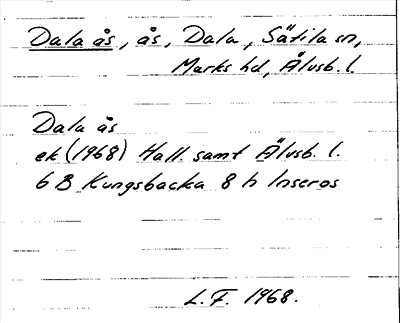 Dala ås, ås, Dala, Sätila sn,
Marks hd, Älvsb. l.
Dala ås
ek (1968) Hall. samt Älvsb. l.
6 B Kungsbacka 8 h Inseros
L.F. 1968.